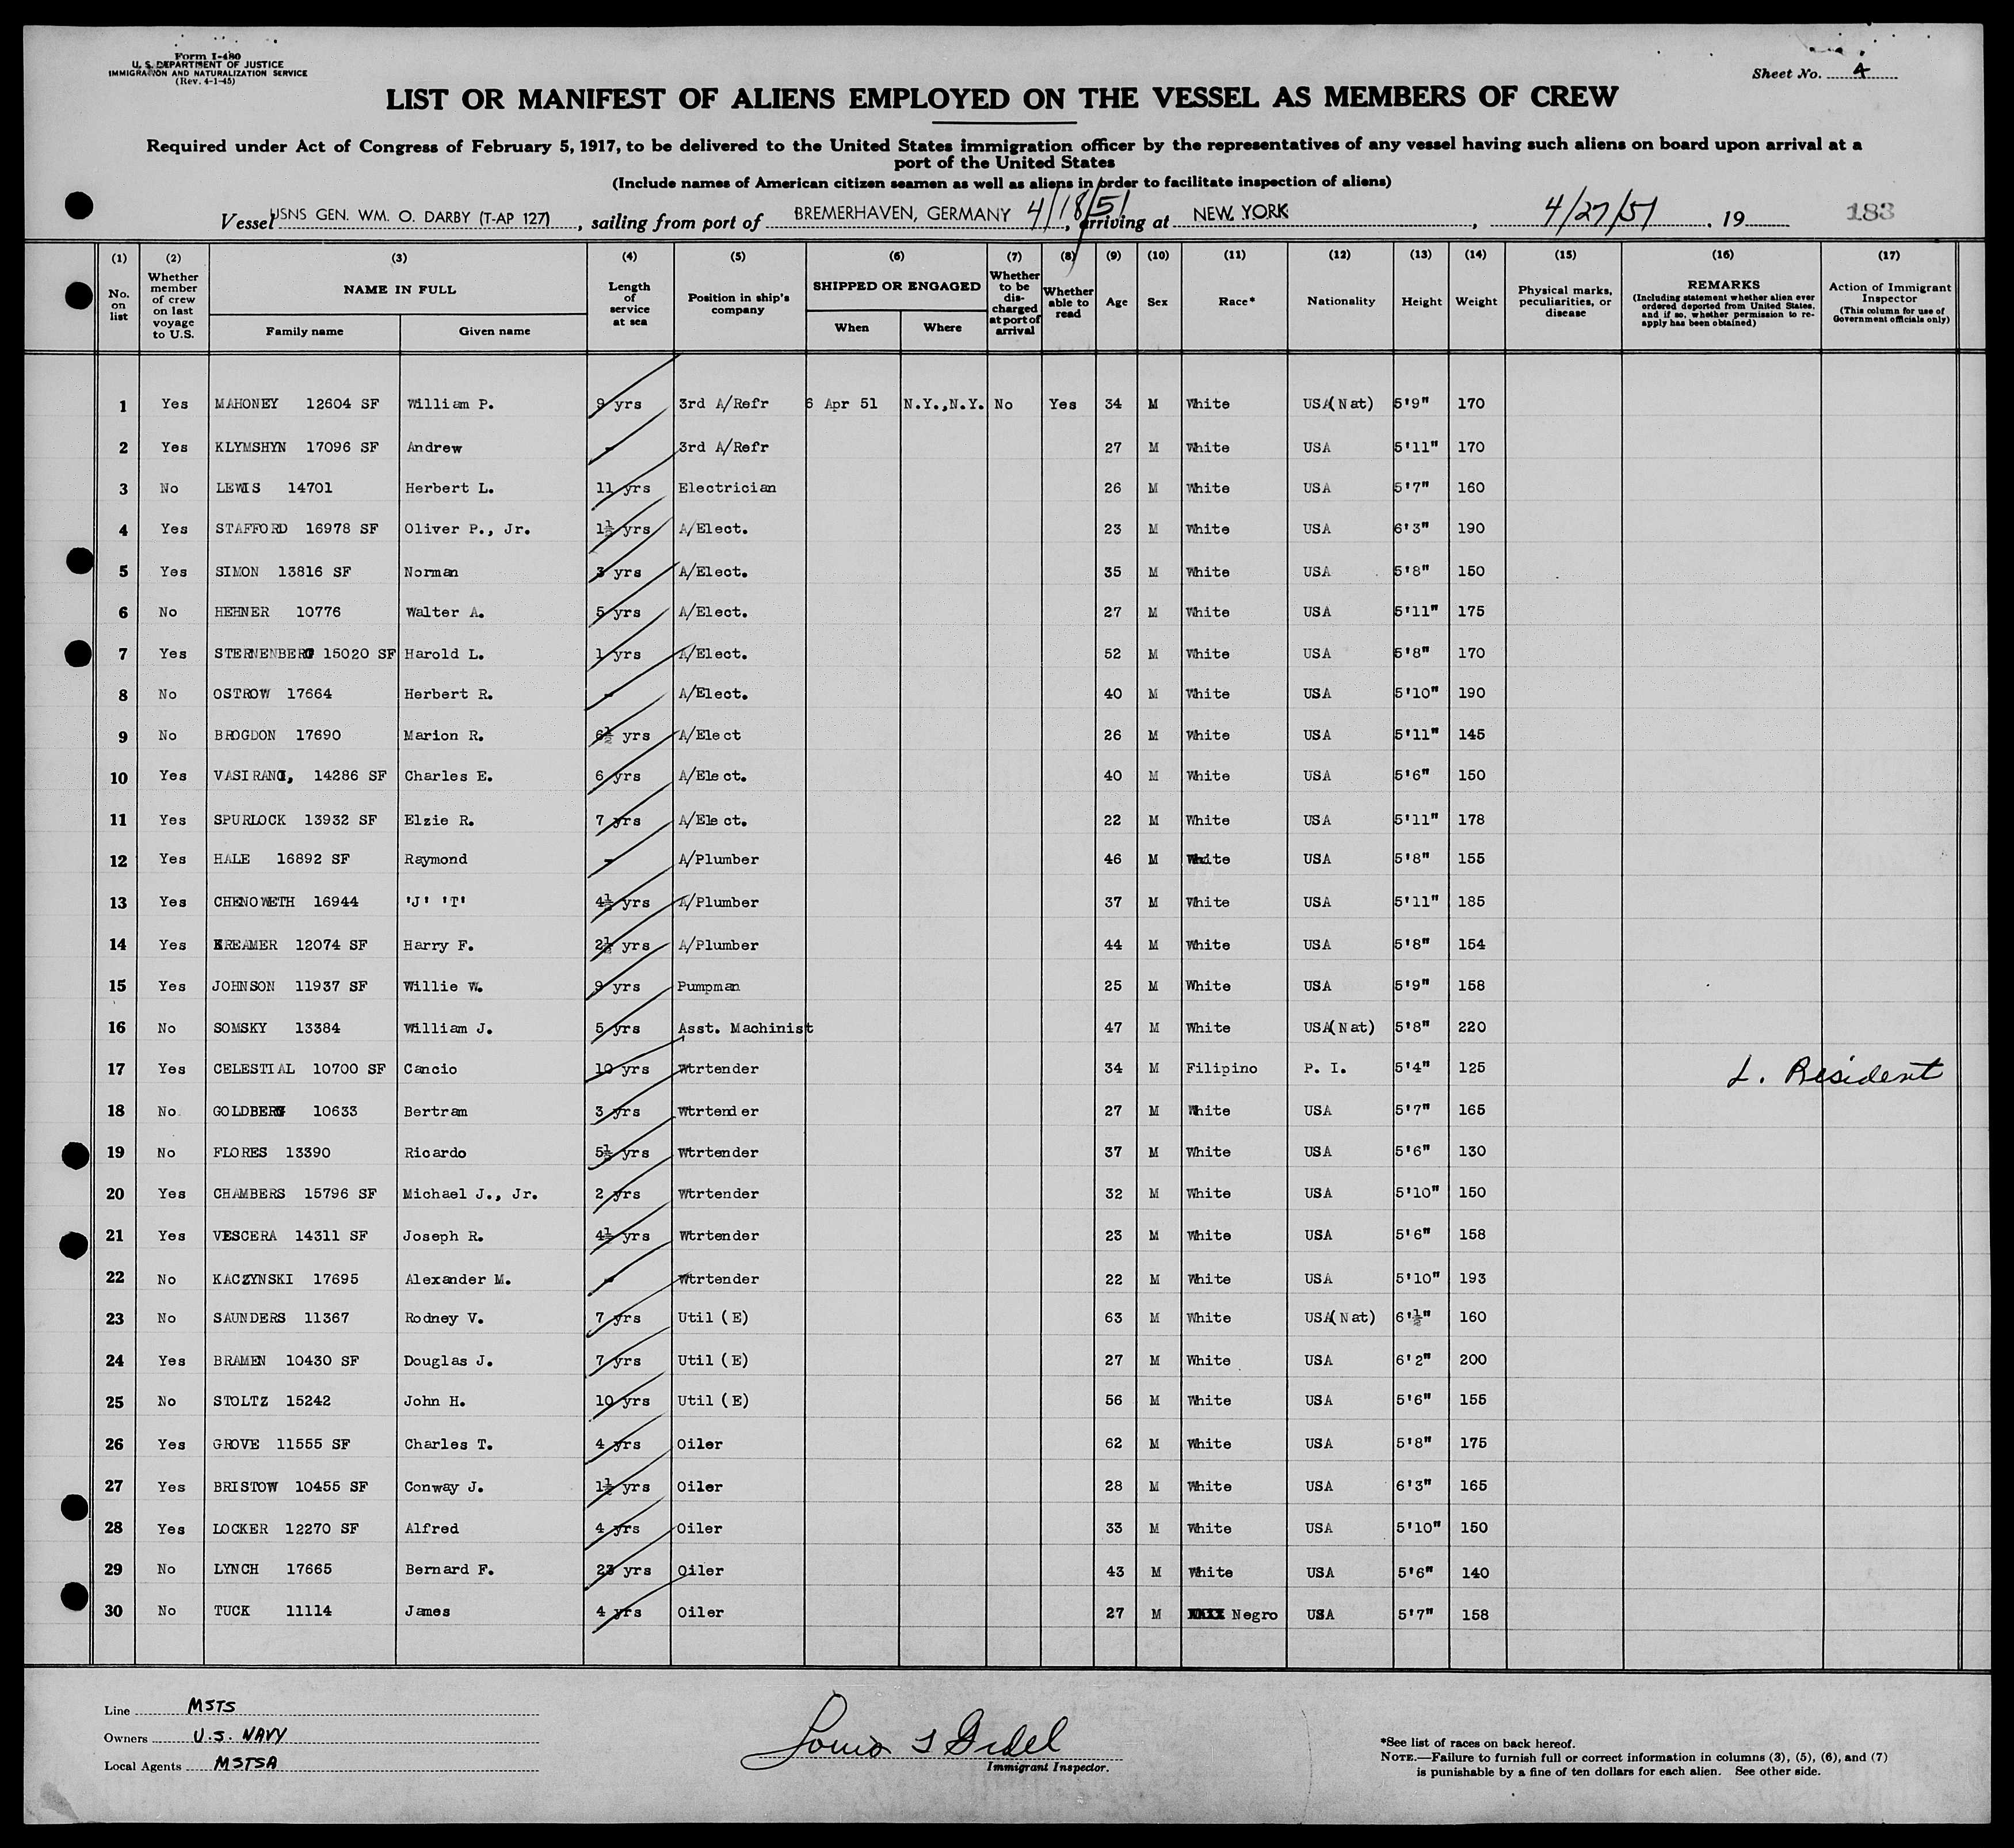 Form I-480
U. S. DEPARTMENT OF JUSTICE
IMMIGRATION AND NATURALIZATION SERVICE
(Rev. 4-1-45)
Sheet No. 4
LIST OR MANIFEST OF ALIENS EMPLOYED ON THE VESSEL AS MEMBERS OF CREW
Required under Act of Congress of February 5, 1917, to be delivered to the United States immigration officer by the representatives of any vessel having such aliens on board upon arrival at a
port of the United States
(Include names of American citizen seamen as well as aliens in order to facilitate inspection of aliens)
Vessel USNS GEN. WM. O. DARBY (T-AP 127), sailing from port of BREMERHAVEN, GERMANY 4/18/51, arriving at NEW YORK, 4/27/51, 19 183
(1) (2) (3) (4) (5) (6) (7) (8) (9) (10) (11) (12) (13) (14) (15) (16) (17)
No. on list
Whether member of crew on last voyage to U.S.
NAME IN FULL
Family name Given name
Length of service at sea
Position in ship's company
SHIPPED OR ENGAGED
When Where
Whether to be discharged at port of arrival
Whether able to read
Age Sex Race* Nationality Height Weight
Physical marks, peculiarities, or disease
REMARKS
(Including statement whether alien ever ordered deported from United States, and if so, whether permission to re-apply has been obtained)
Action of Immigrant Inspector
(This column for use of Government officials only)
1 Yes MAHONEY 12604 SF William P. 9 yrs 3rd A/Refr 6 Apr 51 N.Y.,N.Y. No Yes 34 M White USA(Nat) 5'9" 170
2 Yes KLYMSHYN 17096 SF Andrew - 3rd A/Refr 27 M White USA 5'11" 170
3 No LEWIS 14701 Herbert L. 11 yrs Electrician 26 M White USA 5'7" 160
4 Yes STAFFORD 16978 SF Oliver P., Jr. 1½ yrs A/Elect. 23 M White USA 6'3" 190
5 Yes SIMON 13816 SF Norman 3 yrs A/Elect. 35 M White USA 5'8" 150
6 No HEHNER 10776 Walter A. 5 yrs A/Elect. 27 M White USA 5'11" 175
7 Yes STERNENBERG 15020 SF Harold L. 1 yrs A/Elect. 52 M White USA 5'8" 170
8 No OSTROW 17664 Herbert R. - A/Elect. 40 M White USA 5'10" 190
9 No BROGDON 17690 Marion R. 6½ yrs A/Elect 26 M White USA 5'11" 145
10 Yes VASIRANI, 14286 SF Charles E. 6 yrs A/Elect. 40 M White USA 5'6" 150
11 Yes SPURLOCK 13932 SF Elzie R. 7 yrs A/Elect. 22 M White USA 5'11" 178
12 Yes HALE 16892 SF Raymond - A/Plumber 46 M White USA 5'8" 155
13 Yes CHENOWETH 16944 'J' 'T' 4½ yrs A/Plumber 37 M White USA 5'11" 185
14 Yes KREAMER 12074 SF Harry F. 2½ yrs A/Plumber 44 M White USA 5'8" 154
15 Yes JOHNSON 11937 SF Willie W. 9 yrs Pumpman 25 M White USA 5'9" 158
16 No SOMSKY 13384 William J. 5 yrs Asst. Machinist 47 M White USA(Nat) 5'8" 220
17 Yes CELESTIAL 10700 SF Cancio 10 yrs Wtrtender 34 M Filipino P. I. 5'4" 125 L. Resident
18 No. GOLDBERG 10633 Bertram 3 yrs Wtrtender 27 M White USA 5'7" 165
19 No FLORES 13390 Ricardo 5½ yrs Wtrtender 37 M White USA 5'6" 130
20 Yes CHAMBERS 15796 SF Michael J., Jr. 2 yrs Wtrtender 32 M White USA 5'10" 150
21 Yes VESCERA 14311 SF Joseph R. 4½ yrs Wtrtender 23 M White USA 5'6" 158
22 No KACZYNSKI 17695 Alexander M. - Wtrtender 22 M White USA 5'10" 193
23 No SAUNDERS 11367 Rodney V. 7 yrs Util (E) 63 M White USA(Nat) 6'½" 160
24 Yes BRAMEN 10430 SF Douglas J. 7 yrs Util (E) 27 M White USA 6'2" 200
25 No STOLTZ 15242 John H. 10 yrs Util (E) 56 M White USA 5'6" 155
26 Yes GROVE 11555 SF Charles T. 4 yrs Oiler 62 M White USA 5'8" 175
27 Yes BRISTOW 10455 SF Conway J. 1½ yrs Oiler 28 M White USA 6'3" 165
28 Yes LOCKER 12270 SF Alfred 4 yrs Oiler 33 M White USA 5'10" 150
29 No LYNCH 17665 Bernard F. 23 yrs Oiler 43 M White USA 5'6" 140
30 No TUCK 11114 James 4 yrs Oiler 27 M Negro USA 5'7" 158
Line MSTS
Owners U.S. NAVY
Local Agents MSTSA
Immigrant Inspector.
*See list of races on back hereof.
NOTE.—Failure to furnish full or correct information in columns (3), (5), (6), and (7)
is punishable by a fine of ten dollars for each alien. See other side.